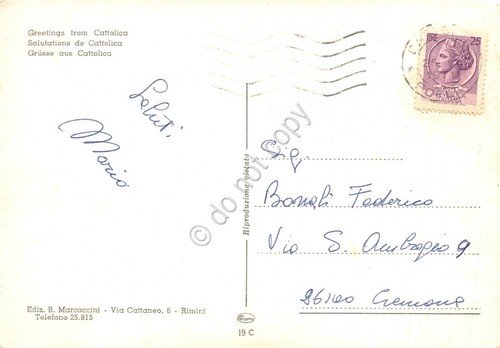 Greetings from Cattolica
Salutations de Cattolica
Grüsse aus Cattolica
LIRE 25
Saluti,
Mario
do not copy
Riproduzione vietata
Sig.
Bonali Federico
Via S. Ambrogio 9
26100 Cremona
Ediz. B. Marcaccini - Via Cattaneo, 6 - Rimini
Telefono 25.815
19 C